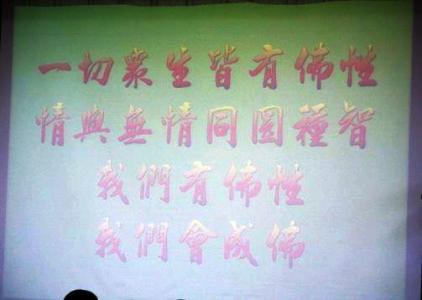 一切眾生皆有佛性
情與無情同圓種智
我們有佛性
我們會成佛